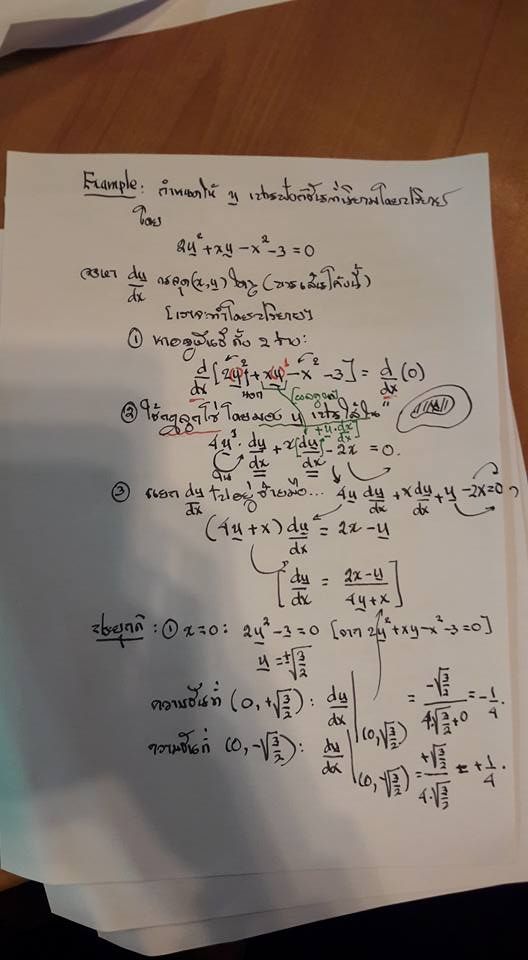 Example: กำหนดให้ y เป็นฟังก์ชันที่นิยามโดยปริยาย
โดย
2y² + xy − x² − 3 = 0
จงหา dy/dx ณ จุด (x, y) ใดๆ (บนเส้นโค้งนี้)
[เราจะทำโดยปริยาย]
① หาอนุพันธ์ทั้ง 2 ข้าง:
d/dx [2y² + xy − x² − 3] = d/dx (0)
② ใช้กฎลูกโซ่ โดยมอง y เป็นไส้ใน
4y¹ · dy/dx + x[dy/dx + y · dx/dx] − 2x = 0.
ใน
③ แยก dy/dx ไปอยู่ซ้ายมือ... 4y dy/dx + x dy/dx + y − 2x = 0
(4y + x) dy/dx = 2x − y
[dy/dx = (2x − y)/(4y + x)]
① x = 0: 2y² − 3 = 0 [จาก 2y² + xy − x² − 3 = 0]
y = ±√(3/2)
ความชันที่ (0, +√(3/2)): dy/dx |(0, √(3/2)) = −√(3/2) / (4·√(3/2) + 0) = −1/4.
ความชันที่ (0, −√(3/2)): dy/dx |(0, −√(3/2)) = +√(3/2) / (4·√(3/2)) = +1/4.